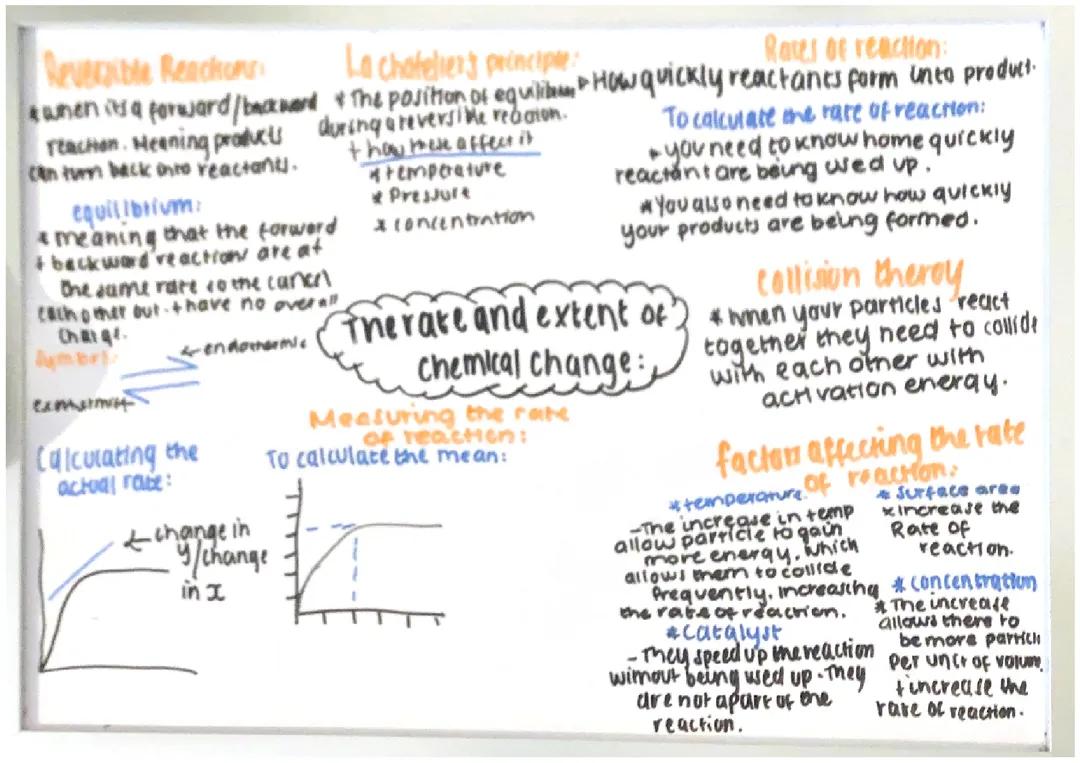 Reversible Reactions:
* when its a forward/backward
reaction. Meaning products
can turn back into reactants.
equilibrium:
* meaning that the forward
+ backward reactions are at
the same rate so the cancel
each other out + have no overall
change.
Symbol:
← endothermic
exothermic
Calculating the
actual rate:
← change in
y/change
in x
La chatelier's principle:
* The position of equilibrium
during a reversible reaction.
+ how these affect it
* temperature
* Pressure
* concentration
The rate and extent of
chemical change:
Measuring the rate
of reaction:
To calculate the mean:
Rates of reaction:
How quickly reactants form into product.
To calculate the rate of reaction:
you need to know home quickly
reactant are being used up.
* You also need to know how quickly
your products are being formed.
Collision theroy
* when your particles react
together they need to collide
with each other with
activation energy.
factors affecting the rate
of reaction:
* temperature
- The increase in temp
allow particle to gain
more energy, which
allows them to collide
frequently, increasing
the rate of reaction.
* Catalyst
- They speed up the reaction
without being used up. They
are not apart of the
reaction.
* Surface area
* increase the
Rate of
reaction.
* concentration
* The increase
allows there to
be more particle
per unit of volume
+ increase the
rate of reaction.